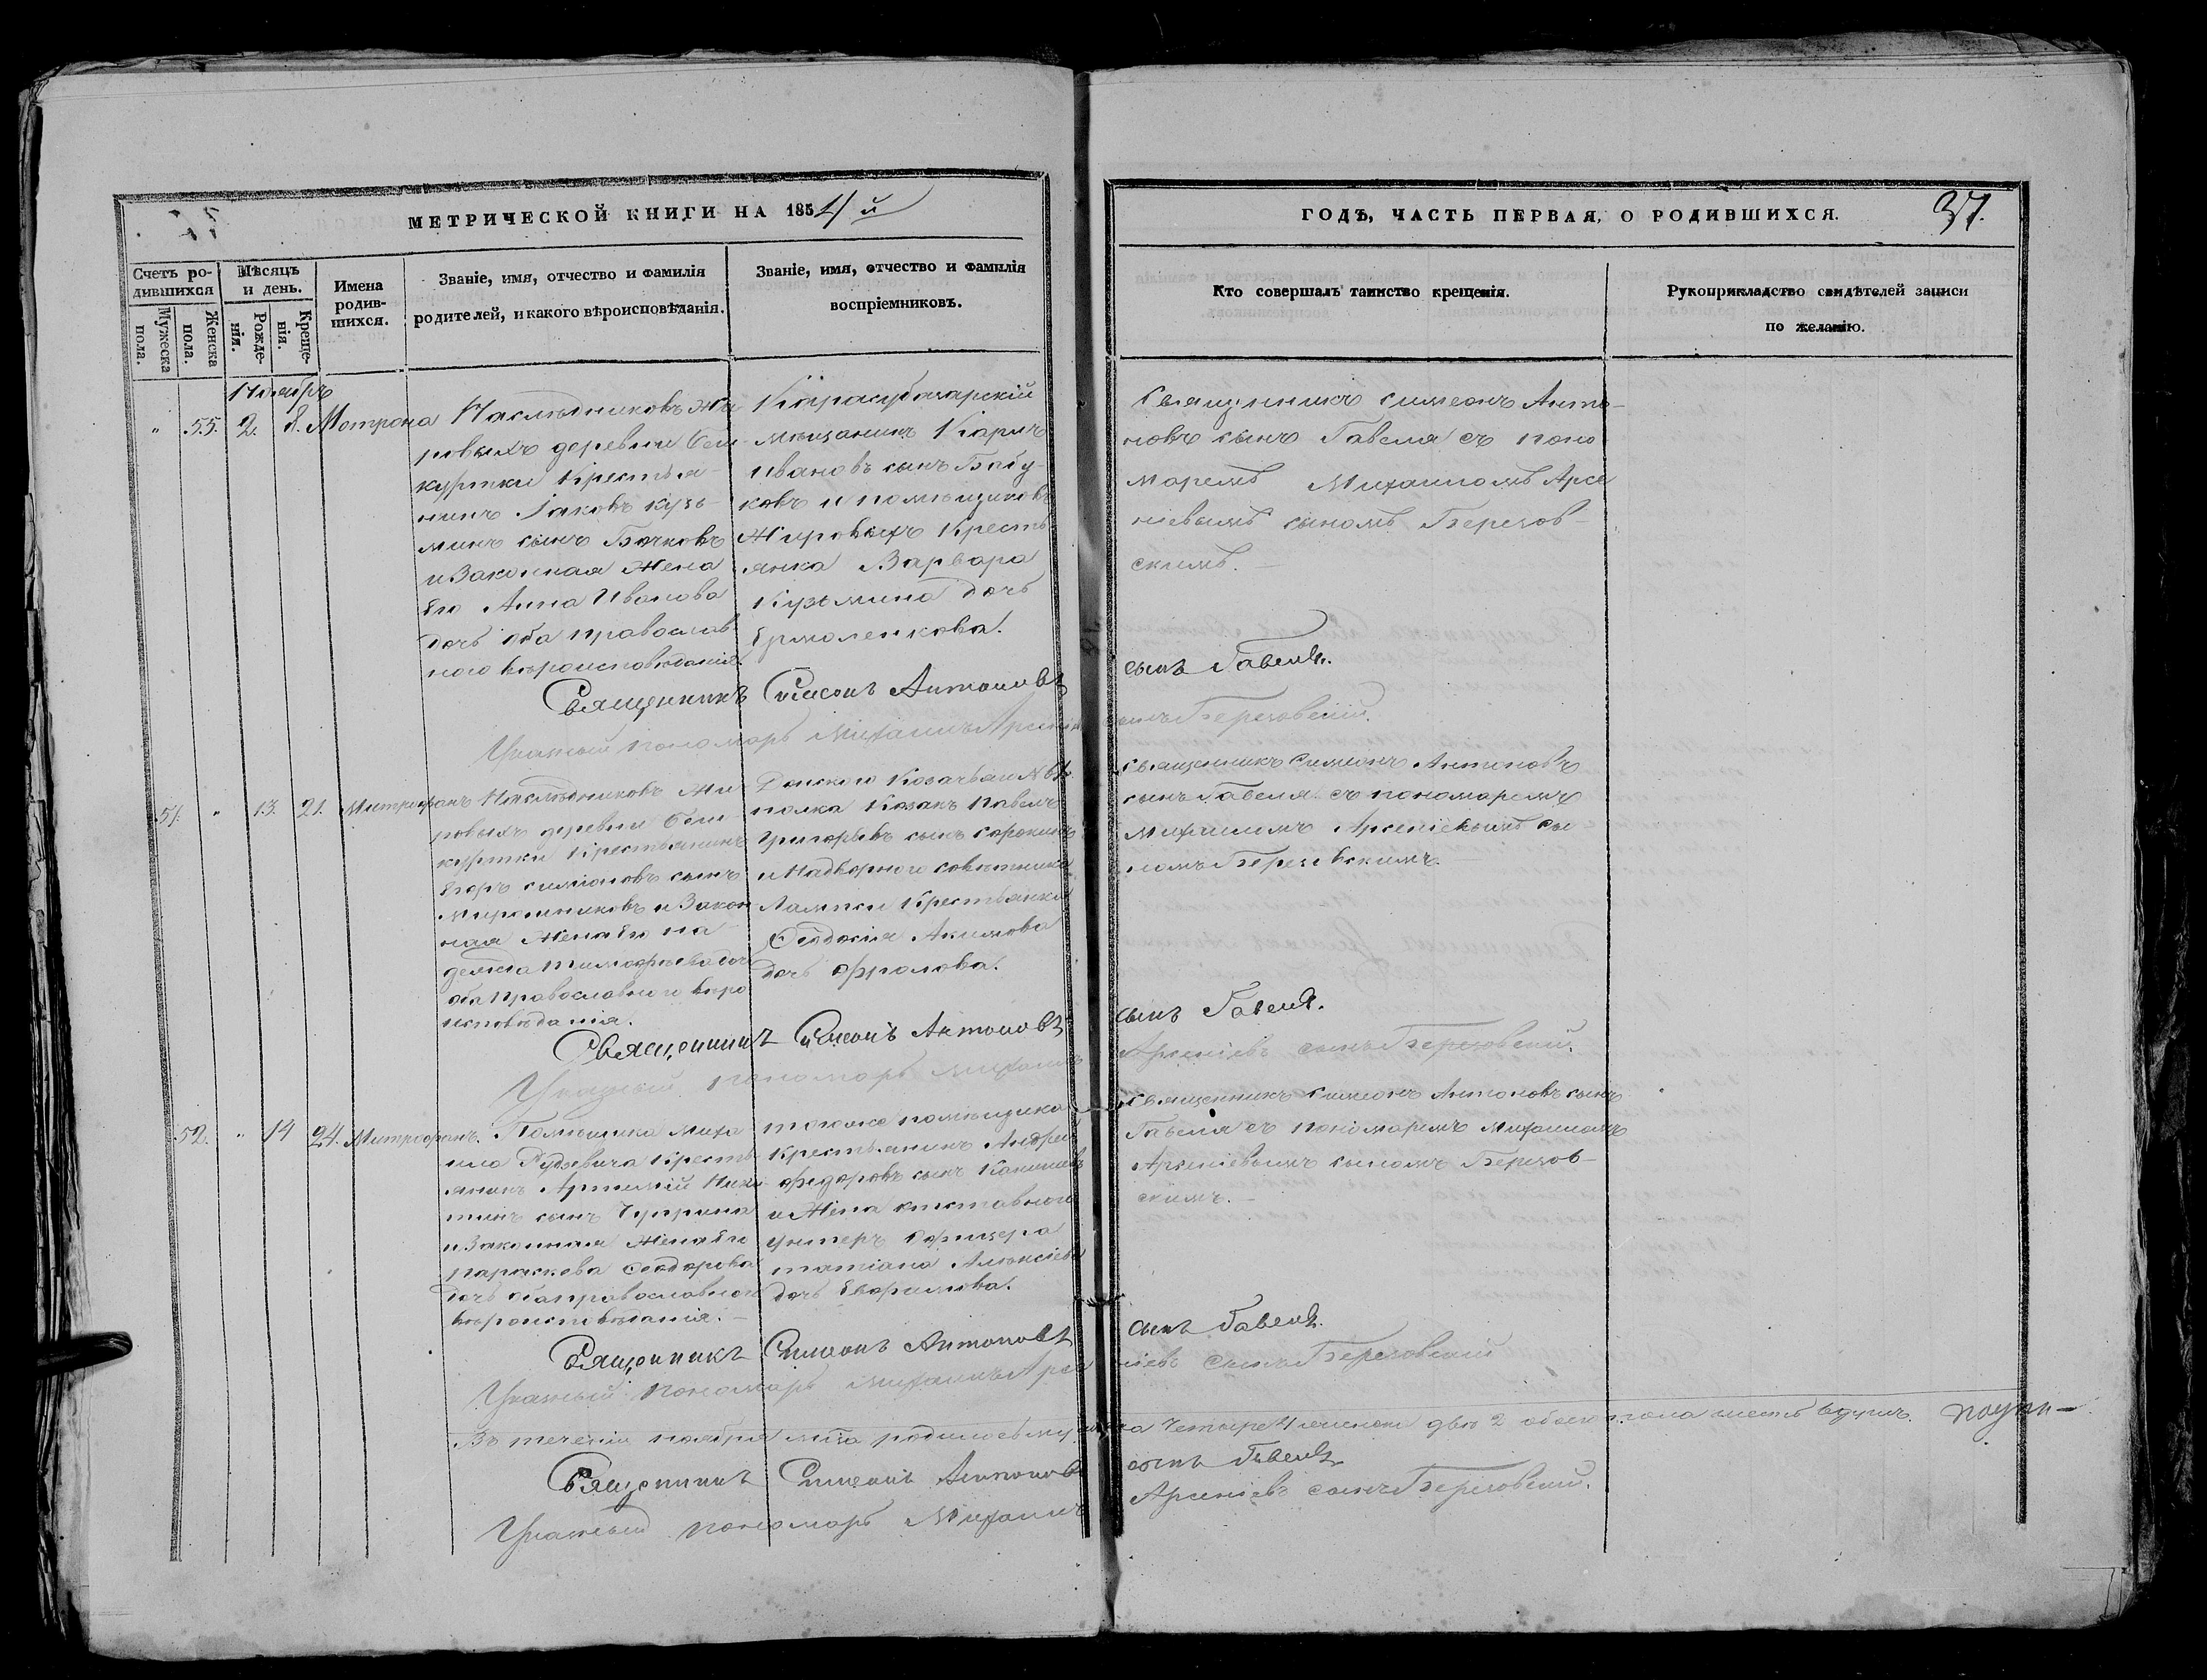 МЕТРИЧЕСКОЙ КНИГИ НА 1854 й
ГОДЪ, ЧАСТЬ ПЕРВАЯ, О РОДИВШИХСЯ.
37.
Счетъ родившихся
Мужеска пола.
Женска пола.
Мѣсяцъ и день.
Рожденія.
Крещенія.
Имена родившихся.
Званіе, имя, отчество и фамилія
родителей, и какого вѣроисповѣданія.
Званіе, имя, отчество и фамилія
воспріемниковъ.
Кто совершалъ таинство крещенія.
Рукоприкладство свидѣтелей записи
по желанію.
Ноябрь
" 55. 2. 8. Мотрона
Наслѣдниковъ Жи
ровыхъ деревни Беш
куртки Крестья-
нинъ Іаковъ Кузь-
минъ сынъ Бочковъ
и Законная Жена
Его Анна Иванова
дочь оба православ
ного вѣроисповѣданія.
Карасубазарскій
мѣщанинъ Карпъ
Ивановъ сынъ
ковъ и помѣщиковъ
Жировыхъ Кресть
янка Варвара
Кузьмина дочь
Ермоленкова.
Священникъ Симеонъ Анто-
новъ сынъ Гавеля съ поно
маремъ Михаиломъ Арсе
ніевымъ сыномъ Березов-
скимъ.
Священникъ Симеонъ Антоновъ сынъ Гавеля.
Указный пономарь Михаилъ Арсеніевъ сынъ Березовскій.
51. " 13. 21. Митрофанъ
Наслѣдниковъ Жи
ровыхъ деревни Беш
куртки Крестьянинъ
Егоръ Симіоновъ сынъ
Мирошниковъ и Закон
ная Жена Его На
дежда Тимофѣева дочь
оба православного вѣро
исповѣданія.
Донского Козачьяго №
полка Козакъ Павелъ
Григорьевъ сынъ Сорокинъ
и Надворного совѣтника
Крестьянка
Ѳеодосія Акимова
дочь Фролова.
Священникъ Симеонъ Антоновъ
сынъ Гавеля съ пономаремъ
Михаиломъ Арсеніевымъ сы
номъ Березовскимъ.
Священникъ Симеонъ Антоновъ сынъ Гавеля.
Указный пономарь Михаилъ Арсеніевъ сынъ Березовскій.
52. " 14 24. Митрофанъ.
Помѣщика Миха
ила Рудзевича Кресть
янинъ Артемій Ники
тинъ сынъ Чуприна
и Законная Жена Его
Параскева Ѳеодорова
дочь оба православного
вѣроисповѣданія. -
тогоже помѣщика
Крестьянинъ Андрей
Федоровъ сынъ
и Жена отставного
унтеръ Офицера
Татіана Алексіева
дочь Евфимова.
Священникъ Симеонъ Антоновъ сынъ
Гавеля съ пономаремъ Михаиломъ
Арсеніевымъ сыномъ Березов-
скимъ. -
Священникъ Симеонъ Антоновъ сынъ Гавеля.
Указный пономарь Михаилъ Арсеніевъ сынъ Березовскій
Въ теченіи ноября м-ца родилось мужеска четыре 4 женска двѣ 2 обоего пола шесть 6 душъ.
Священникъ Симеонъ Антоновъ сынъ Гавеля
Указный пономарь Михаилъ Арсеніевъ сынъ Березовскій.